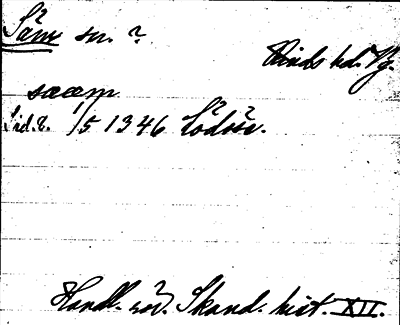 Såm sn. ?
Kinds hd. Vg.
sææm
Sid. 8. 1/5 1346 Lödöse.
Handl. röv. Skand. hist. XII.